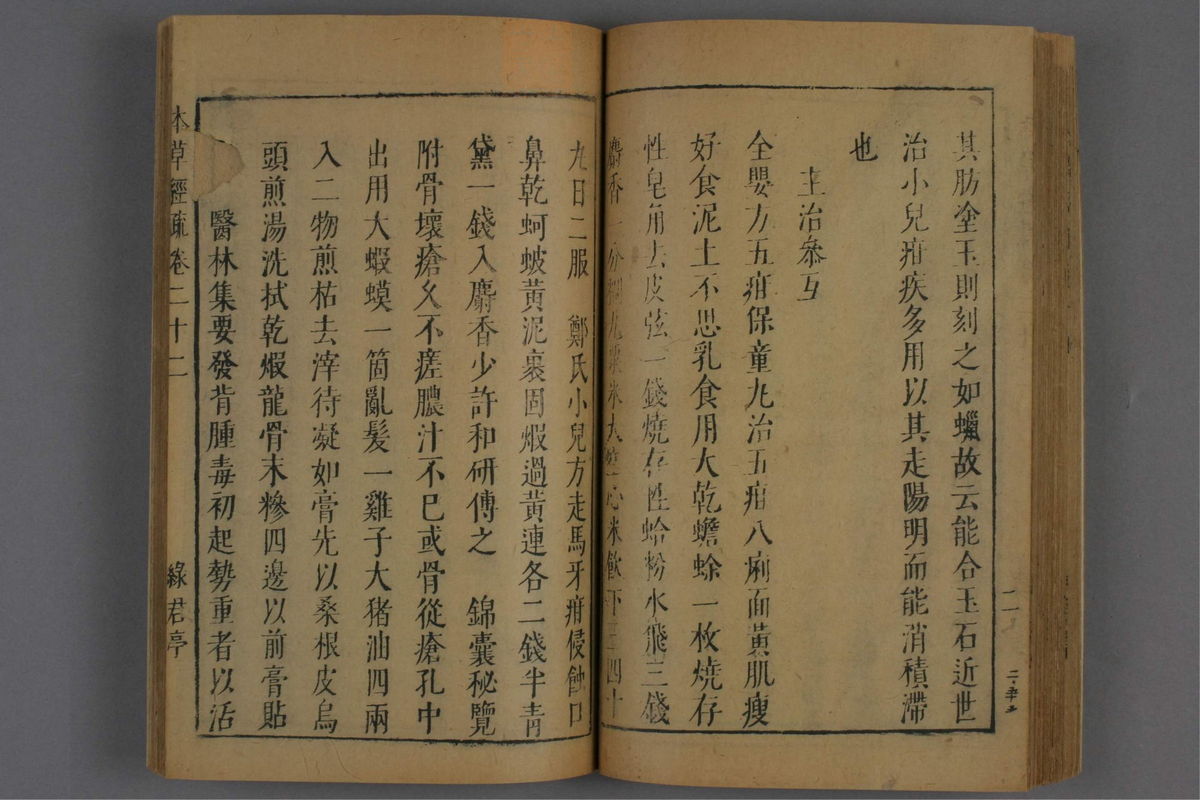 其肪塗玉則刻之如蠟故云能合玉石近世
治小兒疳疾多用以其走陽明而能消積滯
也
主治參互
全嬰方五疳保童丸治五疳八痢面黃肌瘦
好食泥土不思乳食用大乾蟾蜍一枚燒存
性皂角去皮弦一錢燒存性蛤粉水飛三錢
麝香一分糊丸粟米大空心米飲下三四十
九日二服 鄭氏小兒方走馬牙疳侵蝕口
鼻乾蚵蚾黃泥裹固煆過黃連各二錢半青
黛一錢入麝香少許和研傅之 錦囊秘覽
附骨壞瘡久不瘥膿汁不已或骨從瘡孔中
出用大蝦蟆一箇亂髪一雞子大猪油四兩
入二物煎枯去滓待凝如膏先以桑根皮烏
頭煎湯洗拭乾煆龍骨末糝四邊以前膏貼
醫林集要發背腫毒初起勢重者以活
本草經疏卷二十二
綠君亭